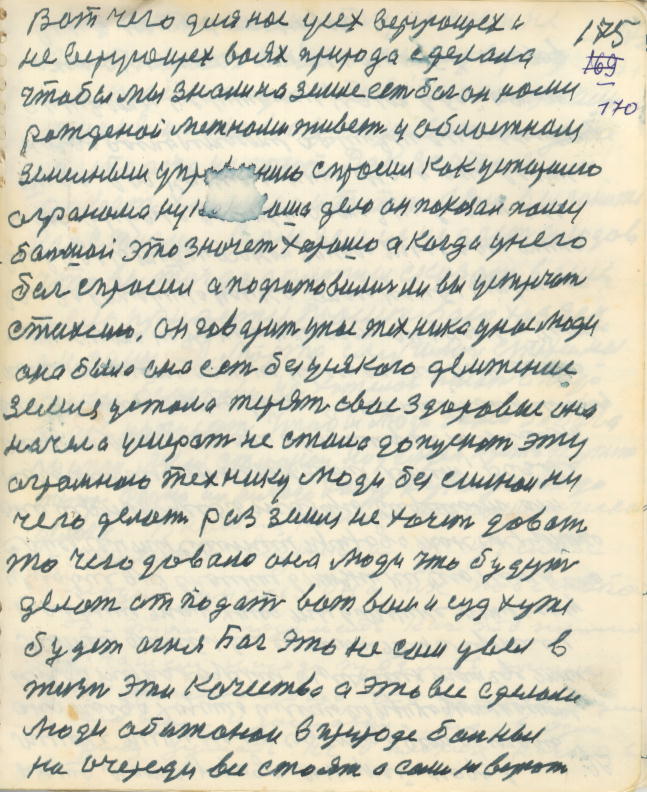 Вот чего для нас усех верующех и
не верующех воях природа сделала
чтобы мы знали на земле ест бог он нами
рожденой меж нами живет и областном
земельным упр нию спросил как устаршего
огранома ну к ваша дело он показал палец
большой это значет хорошо а когда у него
бог спросил а подготовились ли вы устречат
стихею, он говарит унас техника унас люди
она была она ест без усякого движение
земля устала терят свое здоровье она
начела умерат не стала допускат эту
огромною технику люди бессилнои ни
чего делат раз земля не хочит доват
то чего довала она люди что будут
делат от подат вот вам и суд хужи
будет огня Бог это не сам увел в
жизн эти качества а это все сделали
люди обиженои в природе болныи
на очереди все стоят а сами не верют
175
169
170